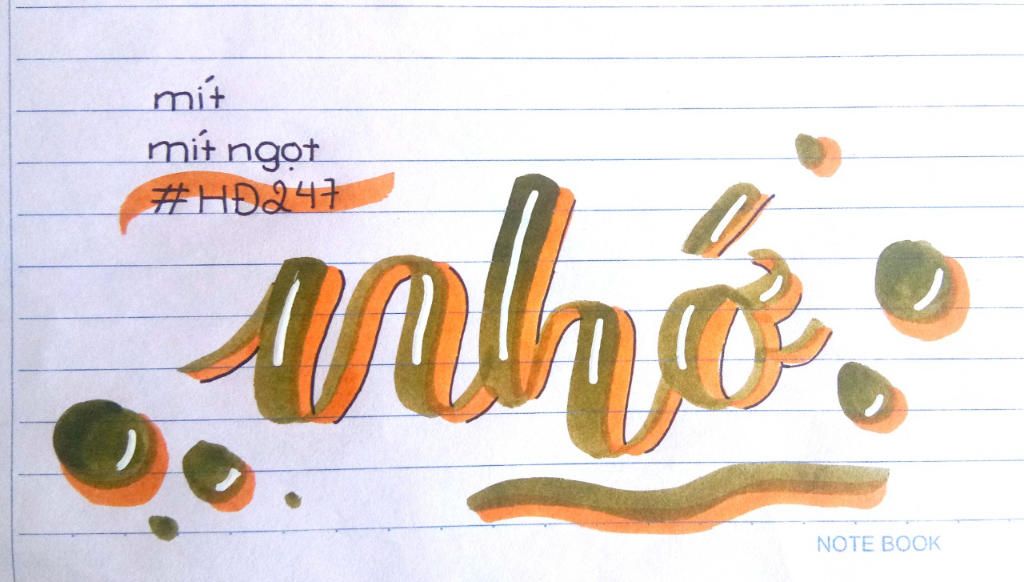 mít
mít ngọt
#HĐ247
nhớ
NOTE BOOK